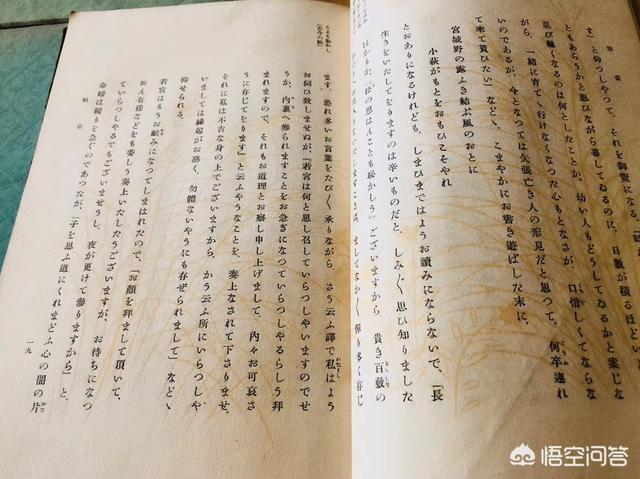 す」と仰しやつて、それを御覽になる
ともあらうかと思ひながら暮してゐるのに、日數が積るほど
忍び難くなるのは何としたことか、幼い人もどうしてゐるかと案じな
がら、一緒に育てゝ行けなくなつた心もとなさが、口惜しくてならな
いのであるが、今となつては矢張亡き人の形見だと思つて、何卒連れ
て來て貰ひたい」などゝ、こまやかにお書き遊ばした末に、
宮城野の露ふき結ぶ風のおとに
小萩がもとをおもひこそやれ
とおありになるけれども、しまひまではようお讀みにならないで、「長
生きをいたしてをりますのは辛いものだと、しみ〴〵思ひ知りました
ばかりか、『松の思はんことも恥かしう』ございますから、貴き百敷の
ましてなか〳〵憚り多く存じ
(古今六帖)
ます。恐れ多いお言葉をたび〳〵承りながら、さう云ふ譯で私はよう
お伺ひ致しませぬが、「若宮は何と思し召していらつしやいますのでせ
うか、内裏へ參られますことをお急ぎになつていらつしやるらしう拜
まれますので、それもお道理とお察し申し上げまして、内々お可哀さ
うに存じてをります」と云ふやうなことを、奏上なされて下さりませ。
それに私は不吉な身の上でございますから、かう云ふ所にいらつしや
いましては縁起がお惡く、勿體ないやうにも存ぜられまして」などゝ
仰せられる。
若宮はもうお寢みになつてしまはれたので、「お顏を拜まして頂いて、
おん有樣などをも委しう奏上いたしたうございますが、お待ちになつ
ていらつしやるでもございませうし、夜が更けて參りますから」と、
命婦は歸りを急ぐのであつたが、「子を思ふ道にくれまどふ心の闇の片
桐壺
一九
悟空问答